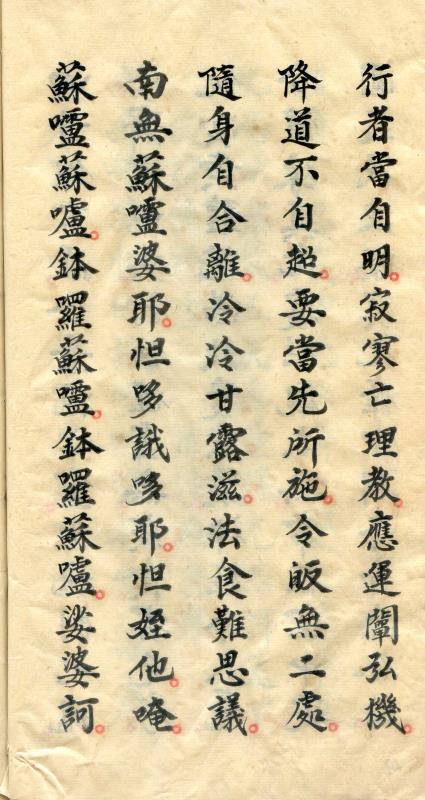 行者當自明。寂寥亡理教。應運闡弘機。
降道不自超。要當先所施。令皈無二處。
隨身自合離。冷冷甘露滋。法食難思議。
南無蘇嚧婆耶。怛哆誐哆耶。怛姪他。唵。
蘇嚧蘇嚧。鉢囉蘇嚧。鉢囉蘇嚧。娑婆訶。